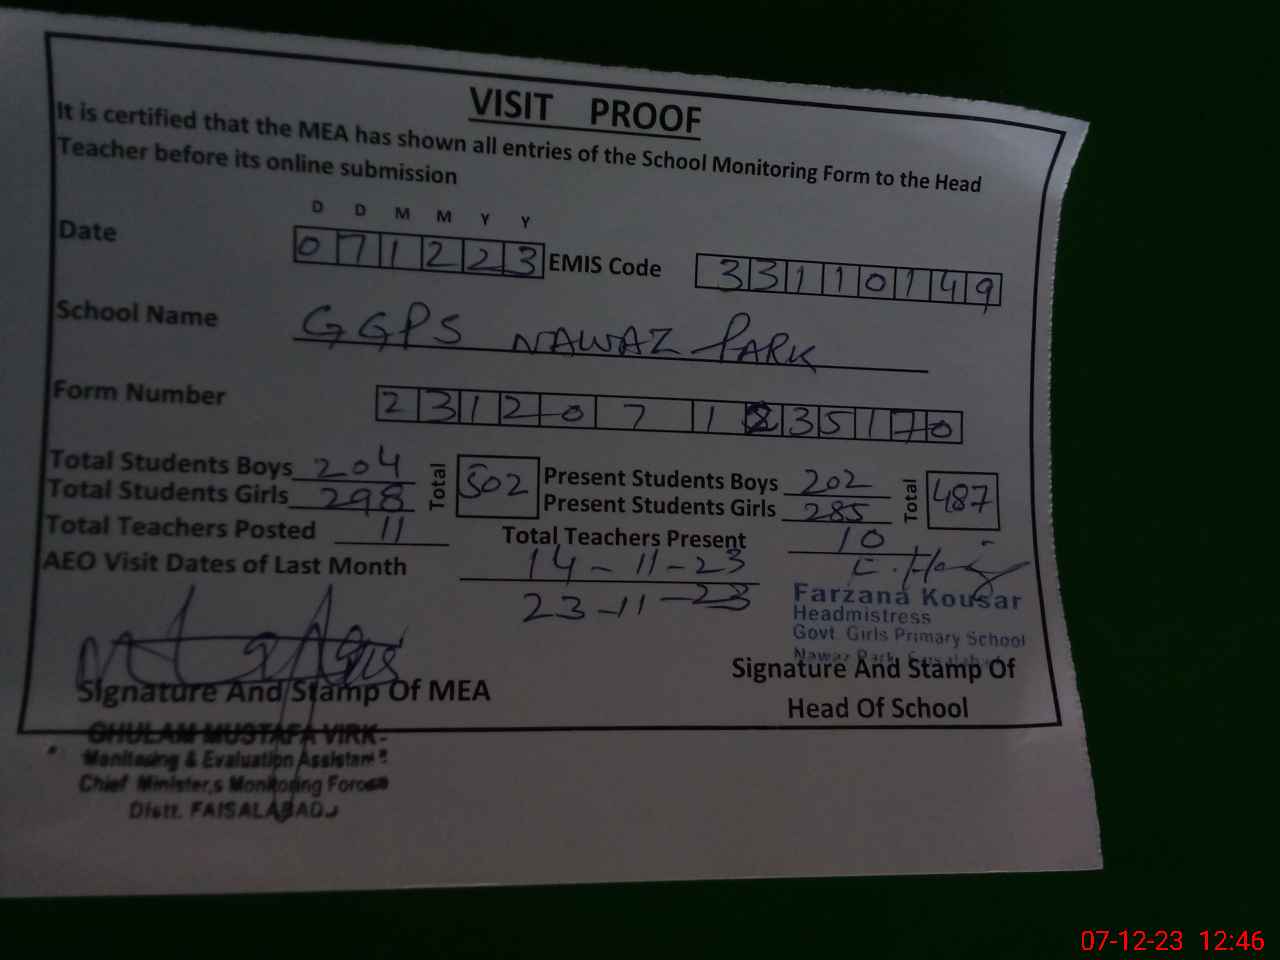 VISIT PROOF
It is certified that the MEA has shown all entries of the School Monitoring Form to the Head
Teacher before its online submission
D D M M Y Y
Date 071223 EMIS Code 33110149
School Name GGPS NAWAZ PARK
Form Number 2312071235170
Total Students Boys 204 Total 502 Present Students Boys 202 Total 487
Total Students Girls 298 Present Students Girls 285
Total Teachers Posted 11 Total Teachers Present 10
AEO Visit Dates of Last Month 14-11-23
23-11-23
Farzana Kousar
Headmistress
Govt. Girls Primary School
Nawaz Park
Signature And Stamp Of MEA
Signature And Stamp Of
Head Of School
GHULAM MUSTAFA VIRK
Monitoring & Evaluation Assistant
Chief Minister,s Monitoring Force
Distt. FAISALABAD
07-12-23 12:46